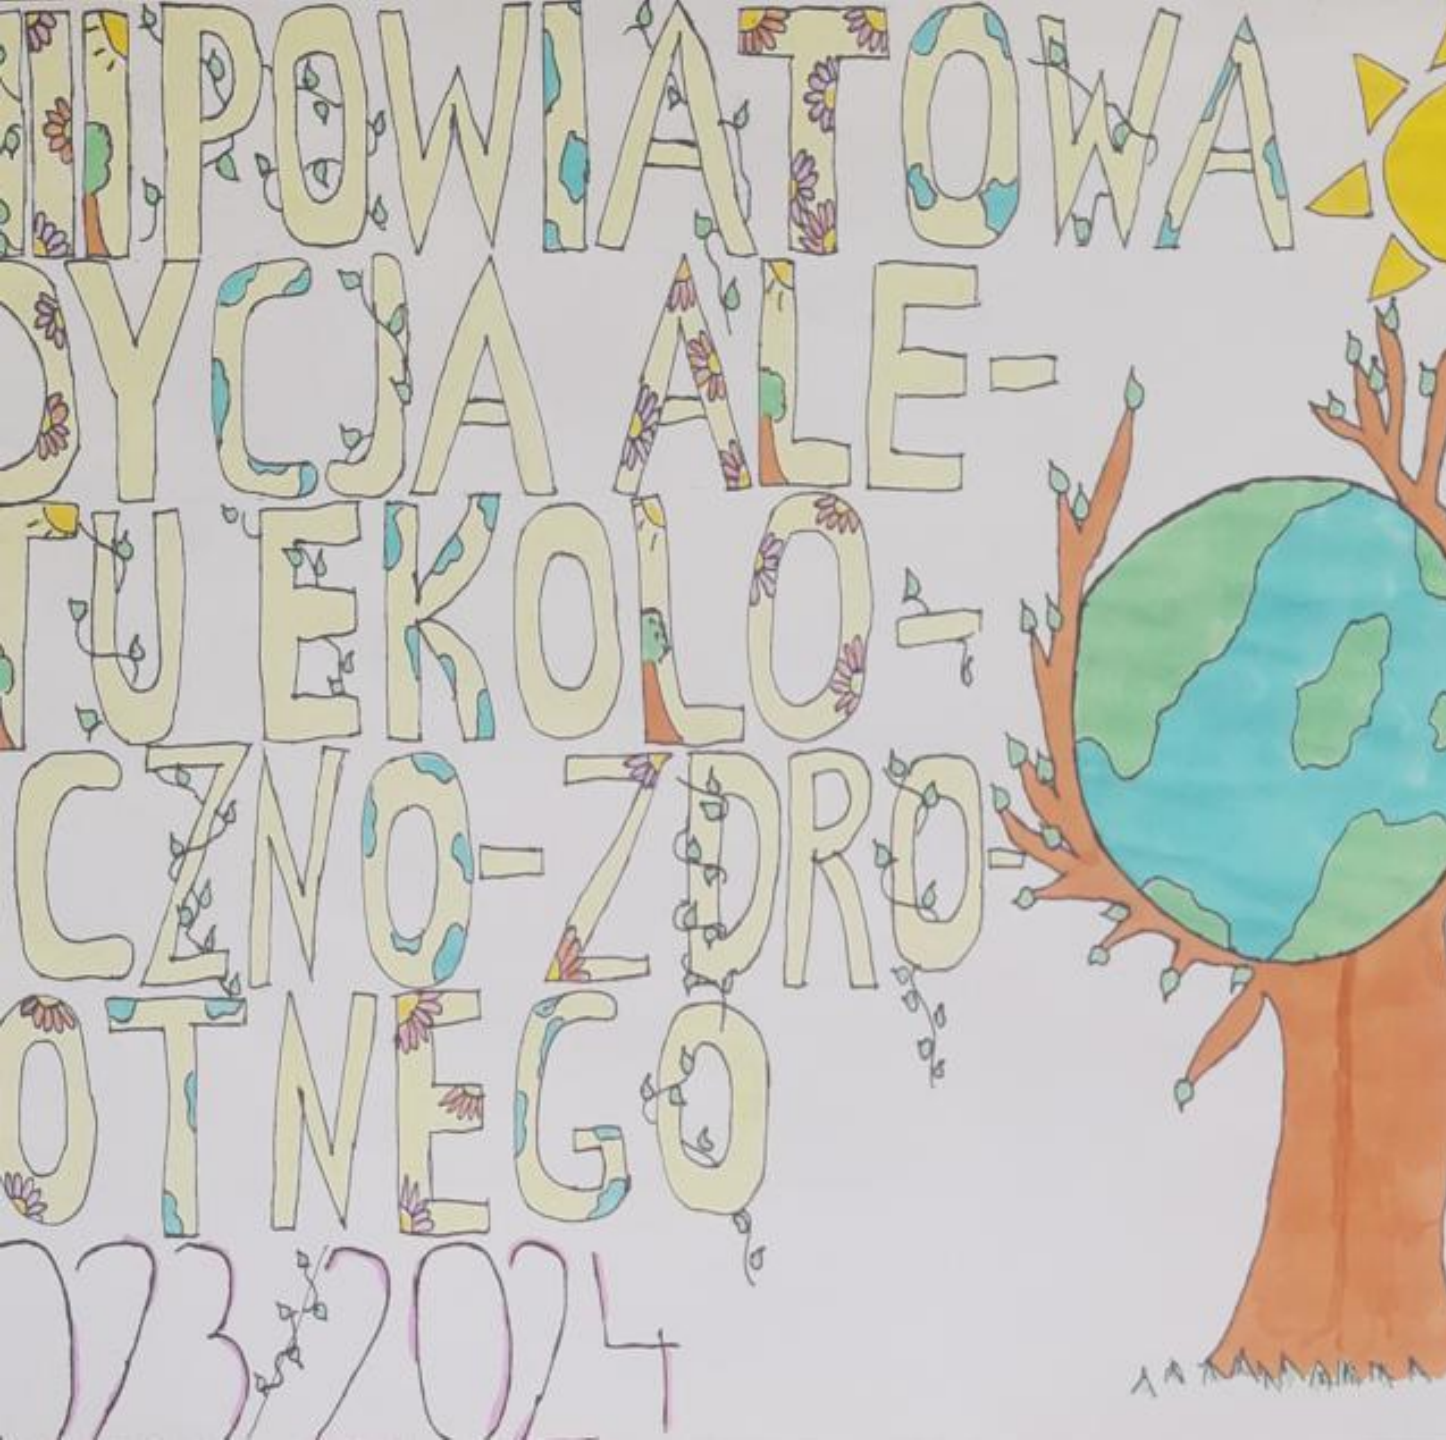 POWIATOWA
DYCJA ALE-
TU EKOLO-
CZNO-ZDRO-
OTNEGO
023/2024